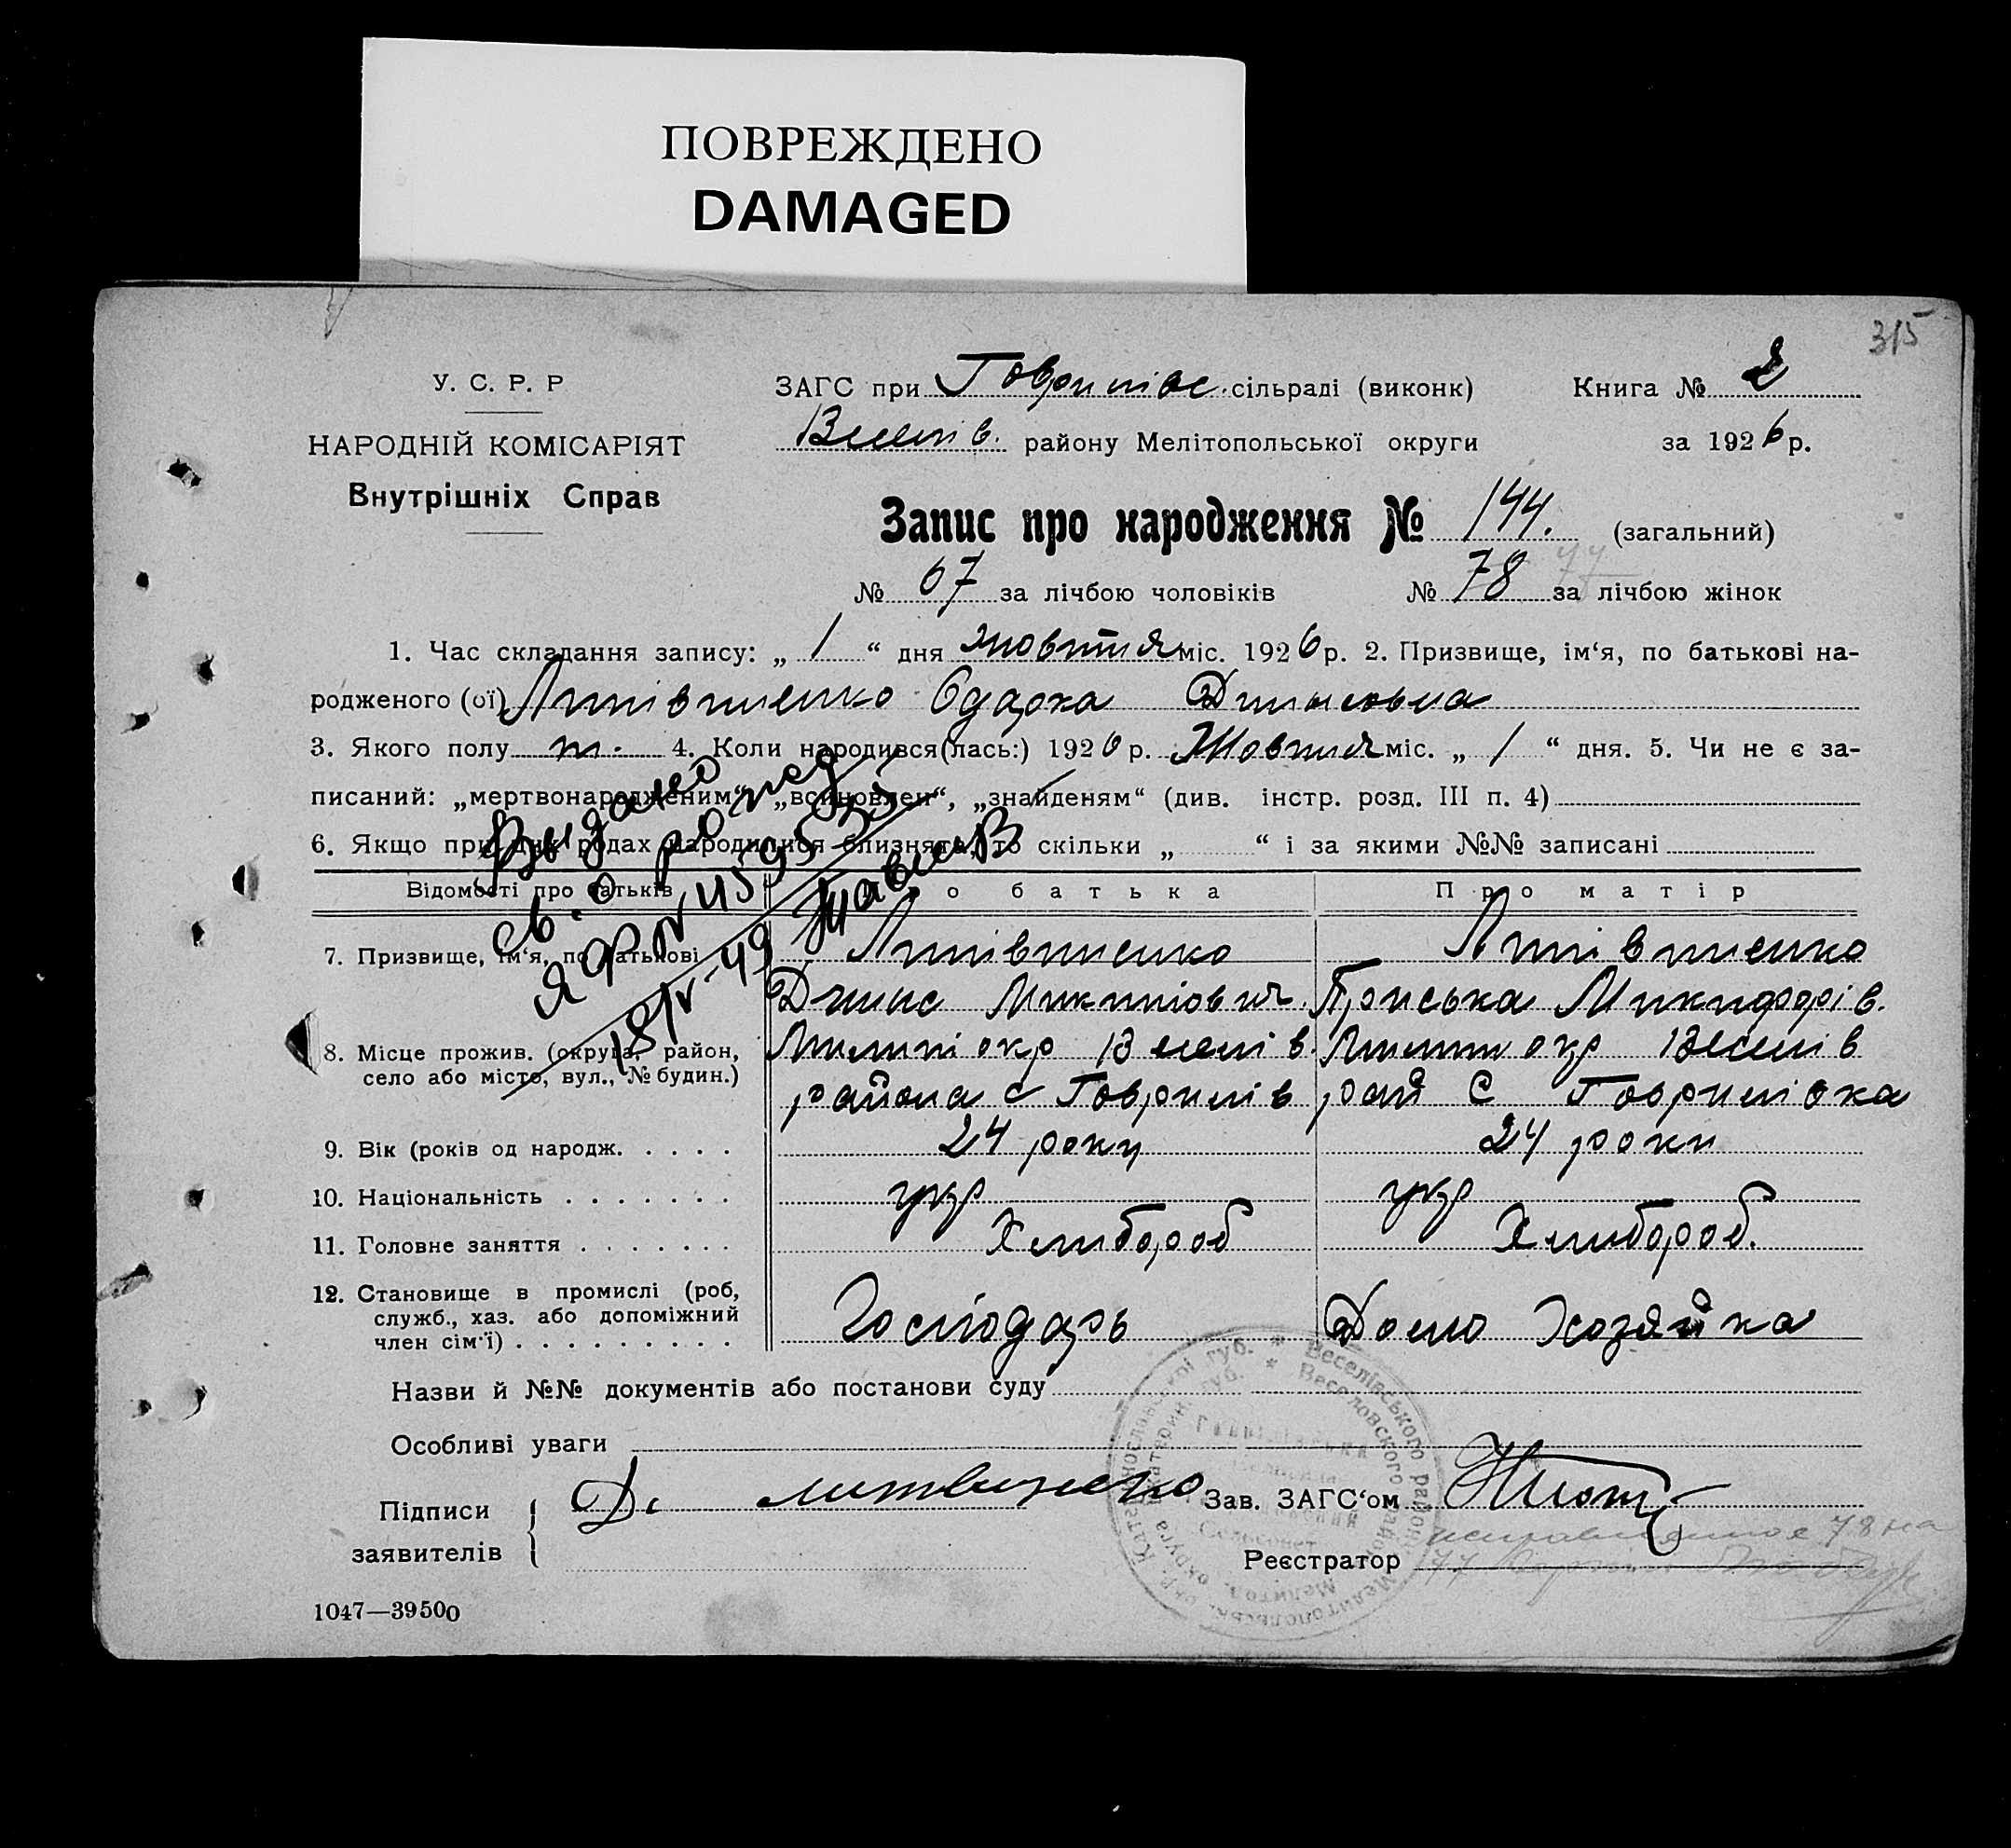 ПОВРЕЖДЕНО
DAMAGED
315
У. С. Р. Р
НАРОДНІЙ КОМІСАРІЯТ
Внутрішніх Справ
ЗАГС при Гаврилівс. сільраді (виконк) Книга № 2
Веселів. району Мелітопольської округи за 1926 р.
Запис про народження № 144. (загальний)
№ 67 за лічбою чоловіків № 78 77 за лічбою жінок
1. Час складання запису: „ 1 “ дня жовтня міс. 1926 р. 2. Призвище, ім‘я, по батькові на-
родженого (ої) Литівченко Одарка Денисовна
3. Якого полу ж. 4. Коли народився(лась:) 1926 р. Жовтня міс. „ 1 “ дня. 5. Чи не є за-
писаний: „мертвонародженим“, „всиновлен“, „знайденям“ (див. інстр. розд. III п. 4)
6. Якщо при цих родах народилися близнята, то скільки „ “ і за якими №№ записані
Выдано
св. о рожд
18/IV-49
Відомості про батьків Про батька Про матір
7. Призвище, ім‘я, по батькові Литівченко Литівченко
Денис Микитович. Пріська Микифорів.
8. Місце прожив. (округа, район, Мелит окр Веселів. Мелит окр Веселів
село або місто, вул., № будин.) района с Гаврилів рай С Гаврилівка
9. Вік (років од народж. . . . . 24 року 24 роки
10. Національність . . . . . . . укр укр
11. Головне заняття . . . . . . . Хлибороб Хлибороб.
12. Становище в промислі (роб,
служб., хаз. або допоміжний Господарь Домо Хозяйка
член сім‘ї) . . . . . . . . .
Назви й №№ документів або постанови суду
Особливі уваги
Підписи
заявителів
Д. Литвиненко
Зав. ЗАГС‘ом
Реєстратор
78 на
77
1047—39500